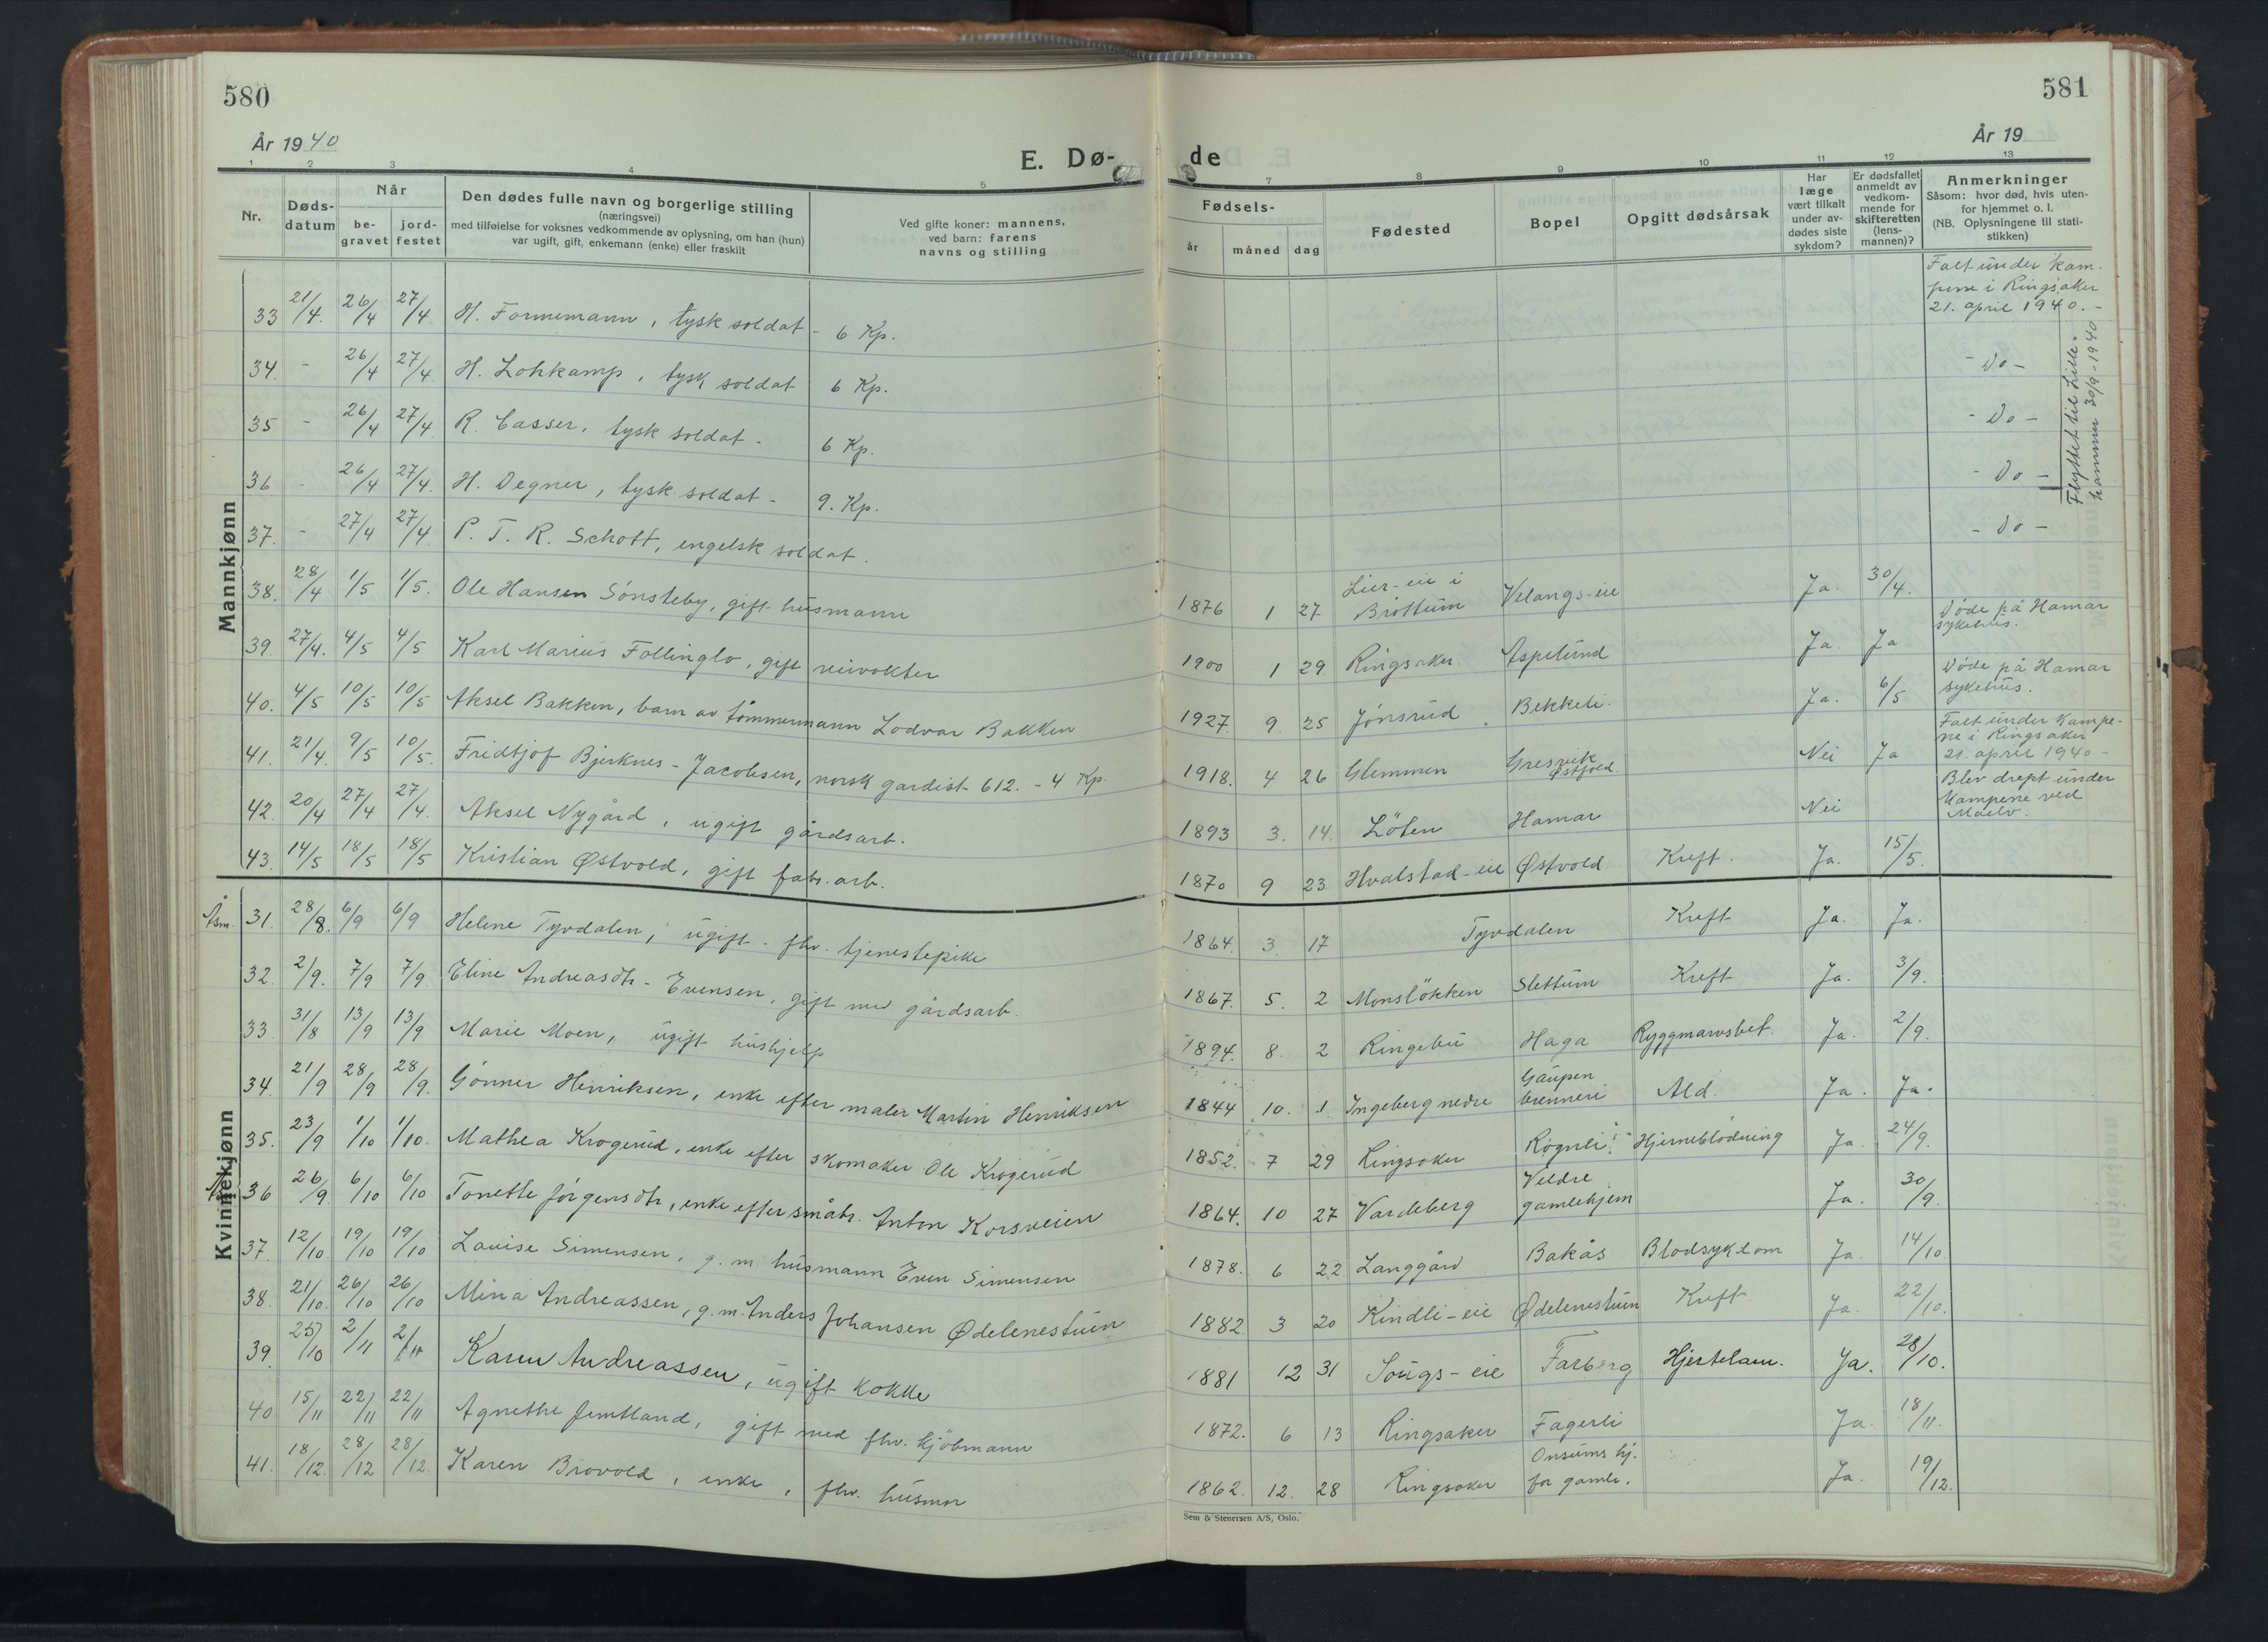 580
581
År 1940
År 19
E. Dø-
de
1 2 3 4 5 7 8 9 10 11 12 13
Nr.
Døds-
datum
Når
be-
gravet
jord-
festet
Den dødes fulle navn og borgerlige stilling
(næringsvei)
med tilføielse for voksnes vedkommende av oplysning, om han (hun)
var ugift, gift, enkemann (enke) eller fraskilt
Ved gifte koner: mannens,
ved barn: farens
navns og stilling
Fødsels-
år måned dag
Fødested
Bopel
Opgitt dødsårsak
Har
læge
vært tilkalt
under av-
dødes siste
sykdom?
Er dødsfallet
anmeldt av
vedkom-
mende for
skifteretten
(lens-
mannen)?
Anmerkninger
Såsom: hvor død, hvis uten-
for hjemmet o. l.
(NB. Oplysningene til stati-
stikken)
Mannkjønn
33 21/4. 26/4 27/4 H. Fornemann, tysk soldat - 6 Kp. Falt under kam-
pene i Ringsaker
21. april 1940. -
34. - 26/4 27/4. H. Lohkamp, tysk soldat 6 Kp. - Do -
35 - 26/4 27/4 R. Casser, tysk soldat - 6 Kp. - Do -
36 - 26/4 27/4. H. Degner, tysk soldat - 9. Kp. - Do -
Flyttet til Lille-
hammer 30/9-1940
37. - 27/4 27/4 P. T. R. Schott, engelsk soldat. - Do -
38. 28/4 1/5 1/5. Ole Hansen Sønsteby, gift husmann 1876 1 27 Lier-eie i
Brøttum Velangs-eie Ja. 30/4.
39. 27/4. 4/5 4/5 Karl Marius Follinglo, gift veivokter 1900 1 29. Ringsaker. Aspelund Ja. Ja Døde på Hamar
sykehus.
40. 4/5 10/5 10/5 Aksel Bakken, barn av tømmermann Lodvar Bakken 1927. 9. 25 Jønsrud. Bekkeli. Ja. 6/5 Døde på Hamar
sykehus.
41. 21/4. 9/5 10/5. Fridtjof Bjerknes-Jacobsen, norsk gardist 612. - 4 Kp. 1918. 4 26 Glemmen Gresvik
Østfold. Nei Ja Falt under kampe-
ne i Ringsaker
21. april 1940 -
42. 20/4 27/4 27/4. Aksel Nygård, ugift gårdsarb. 1893 3. 14. Löten Hamar Nei Blev drept under
kampene ved
Moelv.
43. 14/5 18/5 18/5 Kristian Østvold, gift fabr. arb. 1870 9 23 Hvalstad-eie Østvold. Kreft. Ja. 15/5.
Kvinnekjønn
31. 28/8. 6/9 6/9 Helene Tyvdalen, ugift. fhv. tjenestepike 1864. 3. 17 Tyvdalen Kreft Ja. Ja.
32. 2/9. 7/9 7/9 Eline Andreasdtr- Evensen, gift med gårdsarb. 1867. 5. 2 Monsløkken Slettum Kreft Ja. 3/9.
33. 31/8 13/9 13/9 Marie Moen, ugift hushjelp 1894. 8. 2 Ringebu Haga Ryggmarvsbet. Ja. 2/9.
34. 21/9 28/9 28/9. Gönner Henriksen, enke efter maler Martin Henriksen 1844 10. 1. Ingeberg nedre Gaupen
brenneri Ald. Ja. Ja.
35. 23/9 1/10 1/10. Mathea Krogerud, enke efter skomaker Ole Krogerud 1852. 7 29 Ringsaker Rognli. Hjerneblødning Ja. 24/9.
36 26/9. 6/10 6/10 Tonette Jörgensdtr, enke efter småbr. Anton Korsveien 1864. 10 27 Vardeberg Veldre
gamlehjem Ja. 30/9.
37. 12/10. 19/10 19/10 Lovise Simensen, g. m. husmann Even Simensen 1878. 6 22 Langgård Bakås Blodsykdom Ja. 14/10.
38. 21/10. 26/10 26/10 Mina Andreassen, g. m. Anders Johansen Ødelenestuen 1882 3 20 Kindli-eie Ødelenestuen Kreft. Ja. 22/10.
39. 25/10 2/11 2/11 Karen Andreassen, ugift kokke 1881 12 31 Sougs-eie Farberg Hjertelam. Ja. 28/10.
40 15/11 22/11 22/11 Agnethe Jemtland, gift med fhv. kjöbmann 1872. 6 13 Ringsaker Fagerli Ja. 18/11.
41. 18/12. 28/12 28/12. Karen Brovold, enke, fhv. husmor 1862. 12. 28 Ringsaker Onsums hj.
for gamle. Ja. 19/12.
Sem & Stenersen A/S, Oslo.